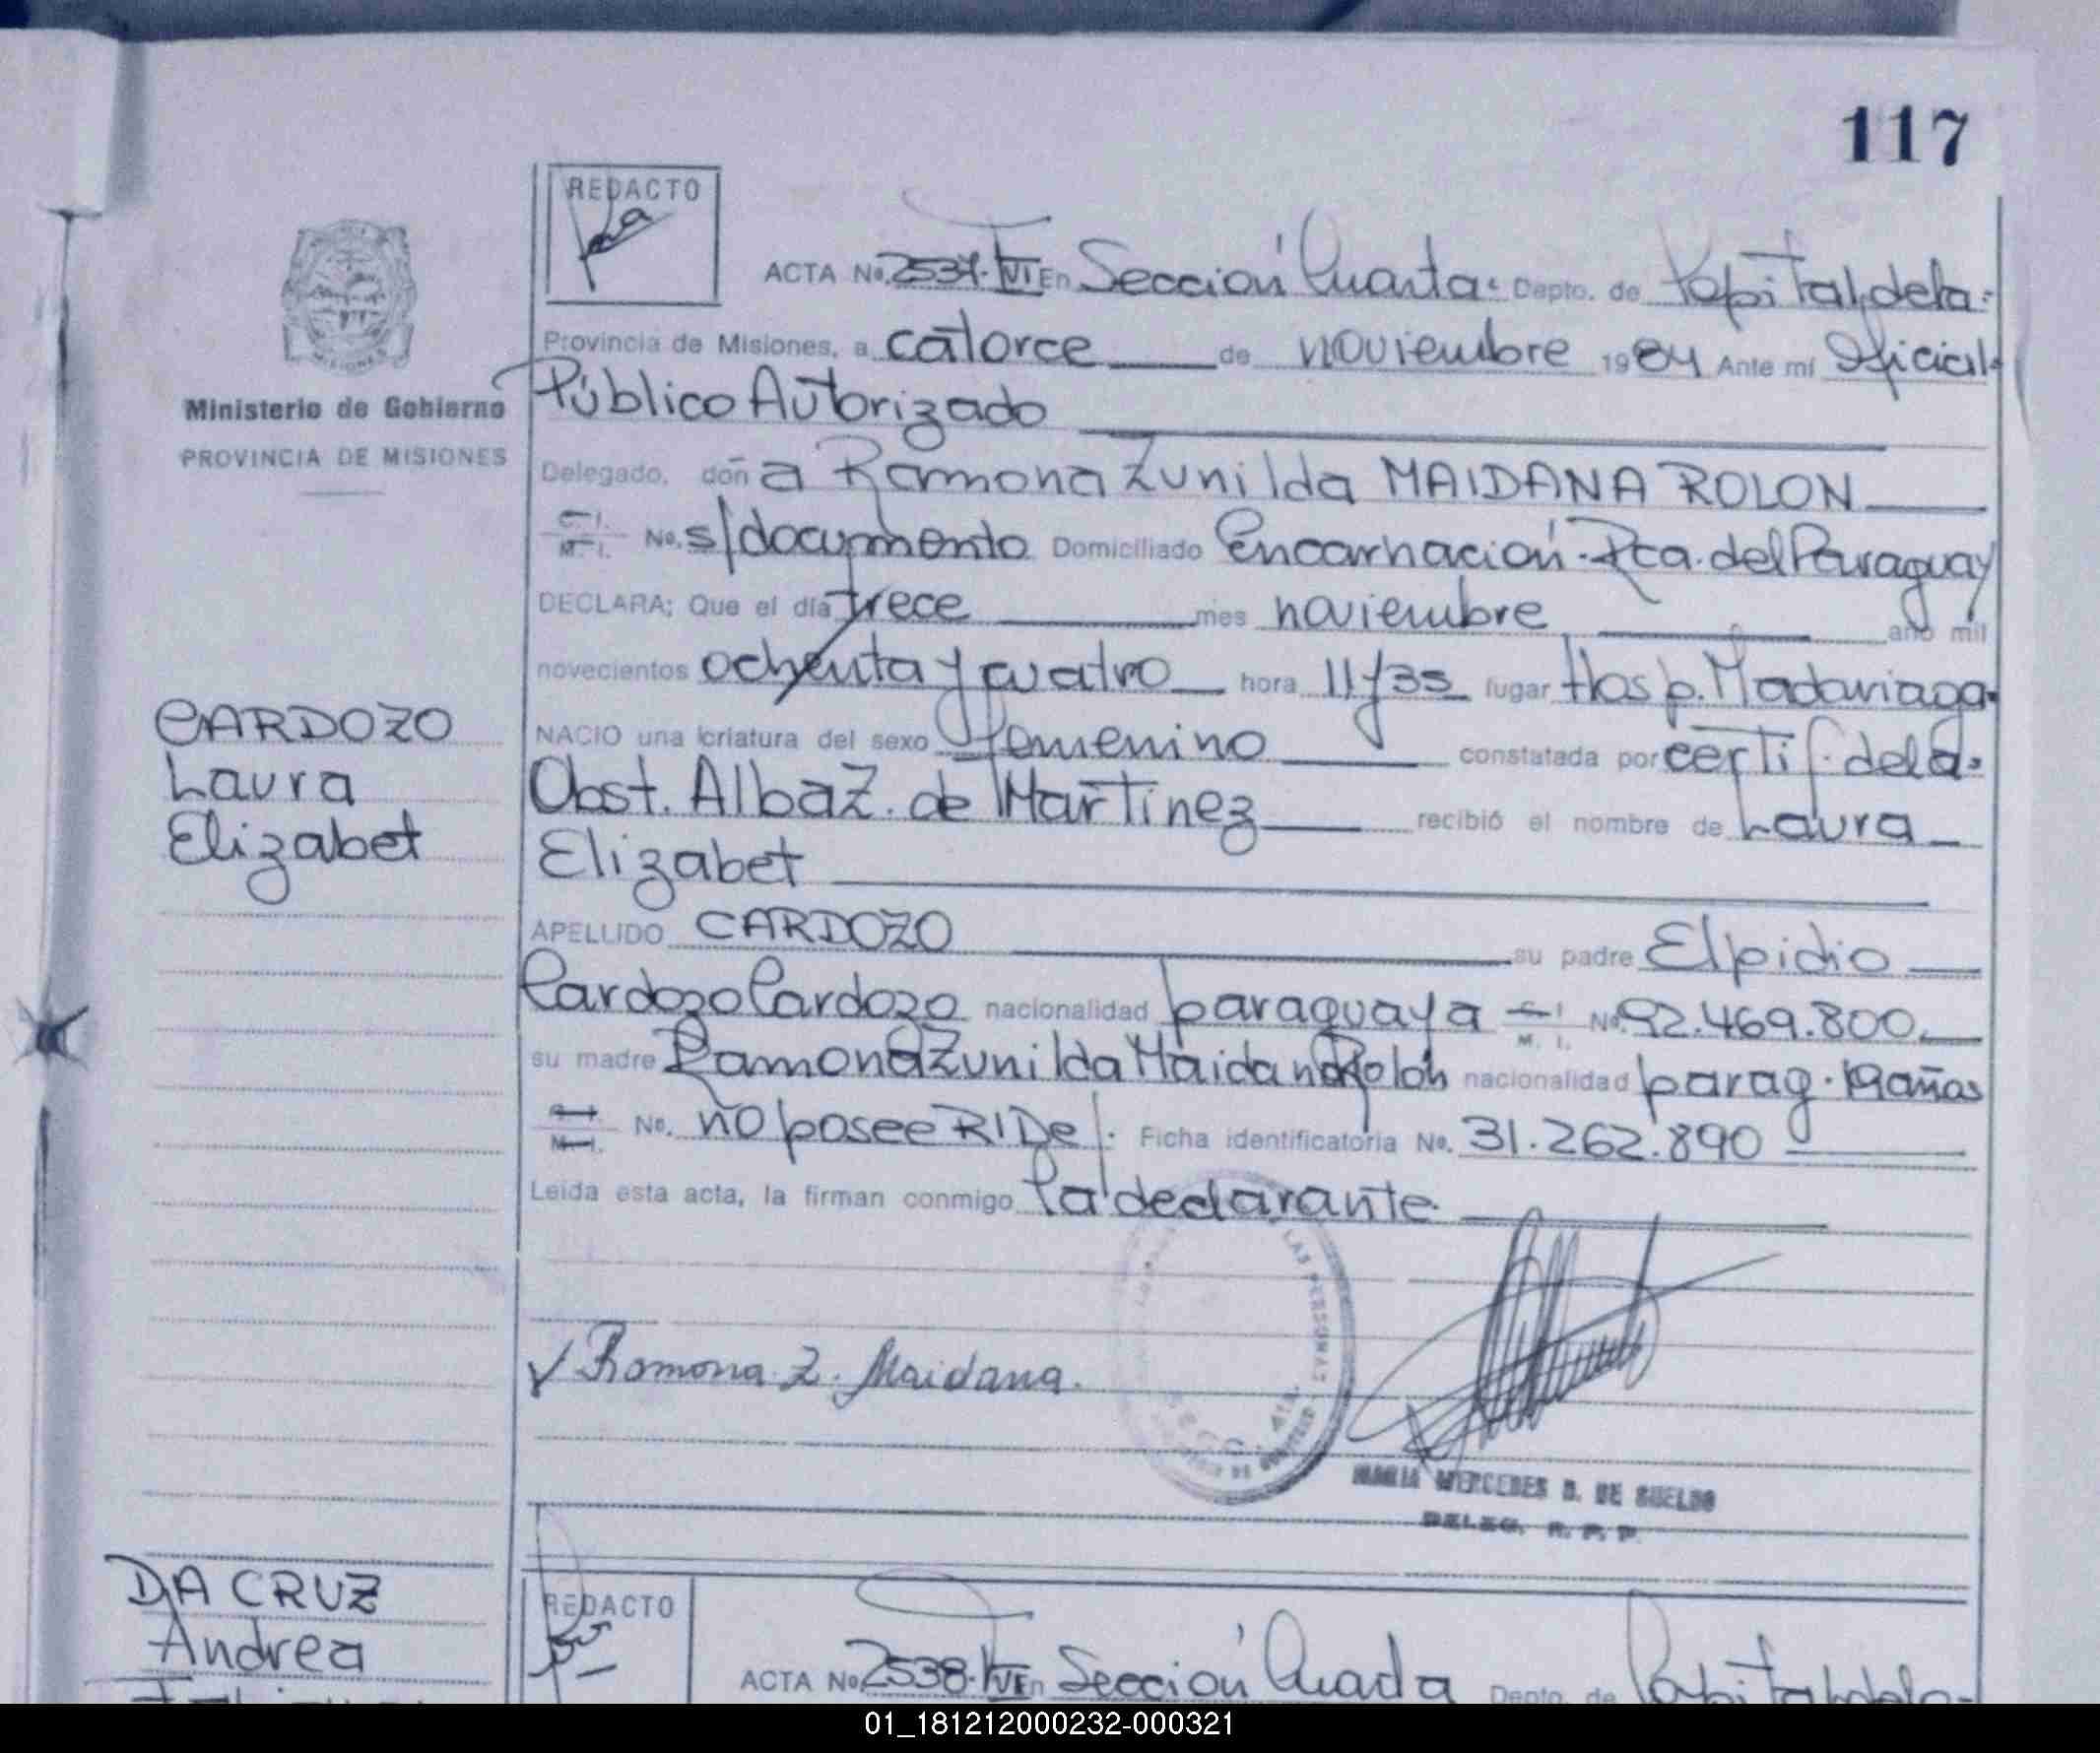 117
REDACTO
ACTA No. 2537-VI En Sección Cuarta Depto. de Capital, de la
Provincia de Misiones, a catorce de noviembre 1984 Ante mí Oficial
Público Autorizado
Ministerio de Gobierno
PROVINCIA DE MISIONES
MISIONES
Delegado, doñ a Ramona Zunilda MAIDANA ROLON
C. I. M. I. No. s/documento Domiciliado Encarnación-Rca. del Paraguay
DECLARA; Que el día trece mes noviembre año mil
novecientos ochenta y cuatro hora 11 y 35 lugar Hosp. Madariaga
CARDOZO
Laura
Elizabet
NACIO una criatura del sexo femenino constatada por certif. de la
Obst. Alba Z. de Martínez recibió el nombre de Laura
Elizabet
APELLIDO CARDOZO su padre Elpidio
Cardozo Cardozo nacionalidad paraguaya C. I. M. I. No. 92.469.800
su madre Ramona Zunilda Maidana Rolón nacionalidad parag. 19 años
C. I. M. I. No. no posee RIDe/. Ficha identificatoria No. 31.262.890
Leída esta acta, la firman conmigo la declarante
LAS PERSONAS
Ramona Z. Maidana.
MARIA MERCEDES D. DE SUELDO
DELEG. R. P. P.
DA CRUZ
Andrea
REDACTO
ACTA No. 2538-VI En Sección Cuarta Depto. de Capital, de la
01_181212000232-000321